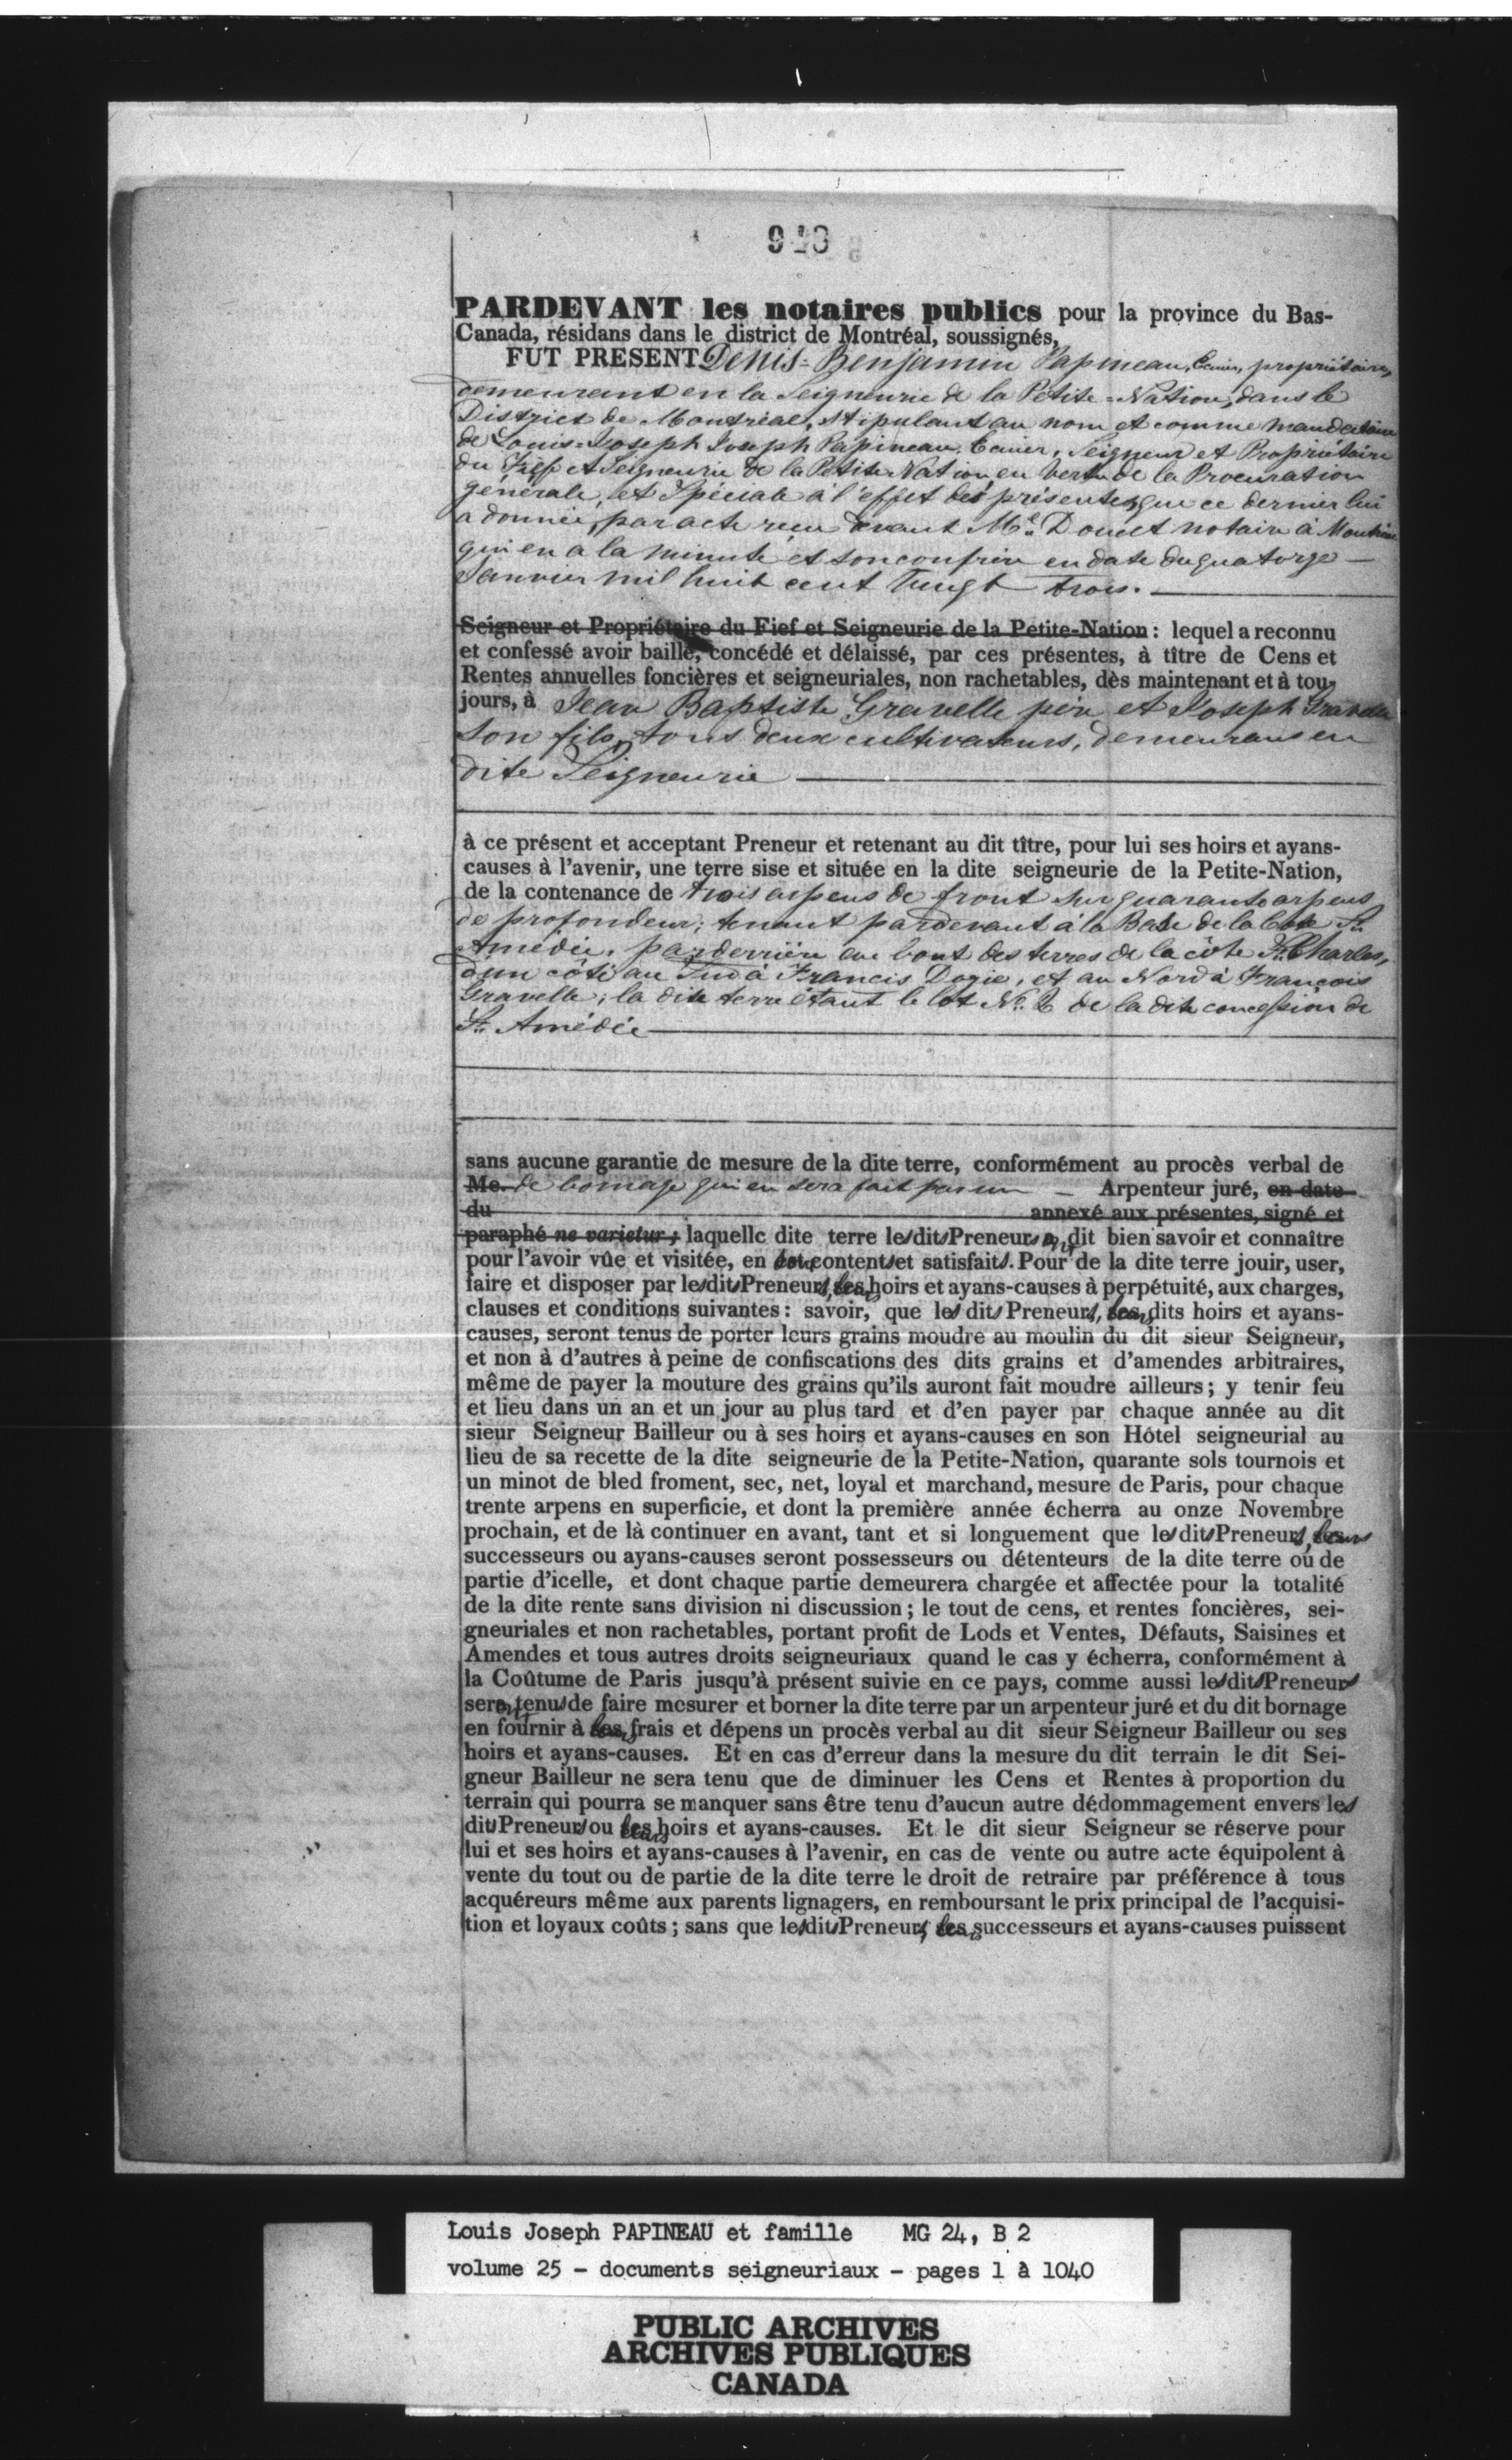 PARDEVANT les notaires publics pour la province du Bas-
Canada, résidans dans le district de Montréal, soussignés,
FUT PRESENT Denis=Benjamin Papineau, Ecuier, propriétaire,
demeurant en la Seigneurie de la Petite=Nation, dans le
District de Montréal, stipulant au nom et comme mandataire
de Louis=Joseph Joseph Papineau, Ecuier, Seigneur et Propriétaire
du Fief et Seigneurie de la Petite Nation, en vertu de la Procuration
générale, et Spéciale à l'effet des présentes, que ce dernier lui
a donnée, par acte reçu devant Me. Doucet notaire à
qui en a la minute et son confrère en date du quatorze
Janvier mil huit cent vingt trois.
Seigneur et Propriétaire du Fief et Seigneurie de la Petite-Nation : lequel a reconnu
et confessé avoir baillé, concédé et délaissé, par ces présentes, à tître de Cens et
Rentes annuelles foncières et seigneuriales, non rachetables, dès maintenant et à tou-
jours, à Jean Baptiste Gravelle père et Joseph Gravelle
son fils, tous deux cultivateurs, demeurans en
dite Seigneurie
à ce présent et acceptant Preneur et retenant au dit tître, pour lui ses hoirs et ayans-
causes à l'avenir, une terre sise et située en la dite seigneurie de la Petite-Nation,
de la contenance de trois arpens de front sur quarante arpens
de profondeur; tenant pardevant à la Base de la Côte St.
Amédée, parderrière au bout des terres de la côte St. Charles,
d'un côté au Sud à Francis Dogie, et au Nord à François
Gravelle; la dite terre étant le lot No. de la dite concession de
St. Amédée
sans aucune garantie de mesure de la dite terre, conformément au procès verbal de
Me. de bornage qui en sera fait par un Arpenteur juré, en date
du annexé aux présentes, signé et
paraphé ne varietur ; laquelle dite terre lesdits Preneurs ont dit bien savoir et connaître
pour l'avoir vûe et visitée, en sont contents et satisfaits. Pour de la dite terre jouir, user,
faire et disposer par lesdits Preneurs, leurs hoirs et ayans-causes à perpétuité, aux charges,
clauses et conditions suivantes : savoir, que les dits Preneurs, leurs dits hoirs et ayans-
causes, seront tenus de porter leurs grains moudre au moulin du dit sieur Seigneur,
et non à d'autres à peine de confiscations des dits grains et d'amendes arbitraires,
même de payer la mouture des grains qu'ils auront fait moudre ailleurs ; y tenir feu
et lieu dans un an et un jour au plus tard et d'en payer par chaque année au dit
sieur Seigneur Bailleur ou à ses hoirs et ayans-causes en son Hôtel seigneurial au
lieu de sa recette de la dite seigneurie de la Petite-Nation, quarante sols tournois et
un minot de bled froment, sec, net, loyal et marchand, mesure de Paris, pour chaque
trente arpens en superficie, et dont la première année écherra au onze Novembre
prochain, et de là continuer en avant, tant et si longuement que lesdits Preneurs, leurs
successeurs ou ayans-causes seront possesseurs ou détenteurs de la dite terre ou de
partie d'icelle, et dont chaque partie demeurera chargée et affectée pour la totalité
de la dite rente sans division ni discussion ; le tout de cens, et rentes foncières, sei-
gneuriales et non rachetables, portant profit de Lods et Ventes, Défauts, Saisines et
Amendes et tous autres droits seigneuriaux quand le cas y écherra, conformément à
la Coûtume de Paris jusqu'à présent suivie en ce pays, comme aussi lesdits Preneurs
seront tenus de faire mesurer et borner la dite terre par un arpenteur juré et du dit bornage
en fournir à leurs frais et dépens un procès verbal au dit sieur Seigneur Bailleur ou ses
hoirs et ayans-causes. Et en cas d'erreur dans la mesure du dit terrain le dit Sei-
gneur Bailleur ne sera tenu que de diminuer les Cens et Rentes à proportion du
terrain qui pourra se manquer sans être tenu d'aucun autre dédommagement envers les
dits Preneurs ou leurs hoirs et ayans-causes. Et le dit sieur Seigneur se réserve pour
lui et ses hoirs et ayans-causes à l'avenir, en cas de vente ou autre acte équipolent à
vente du tout ou de partie de la dite terre le droit de retraire par préférence à tous
acquéreurs même aux parents lignagers, en remboursant le prix principal de l'acquisi-
tion et loyaux coûts ; sans que lesdits Preneurs, leurs successeurs et ayans-causes puissent
Louis Joseph PAPINEAU et famille MG 24, B 2
volume 25 - documents seigneuriaux - pages 1 à 1040
PUBLIC ARCHIVES
ARCHIVES PUBLIQUES
CANADA